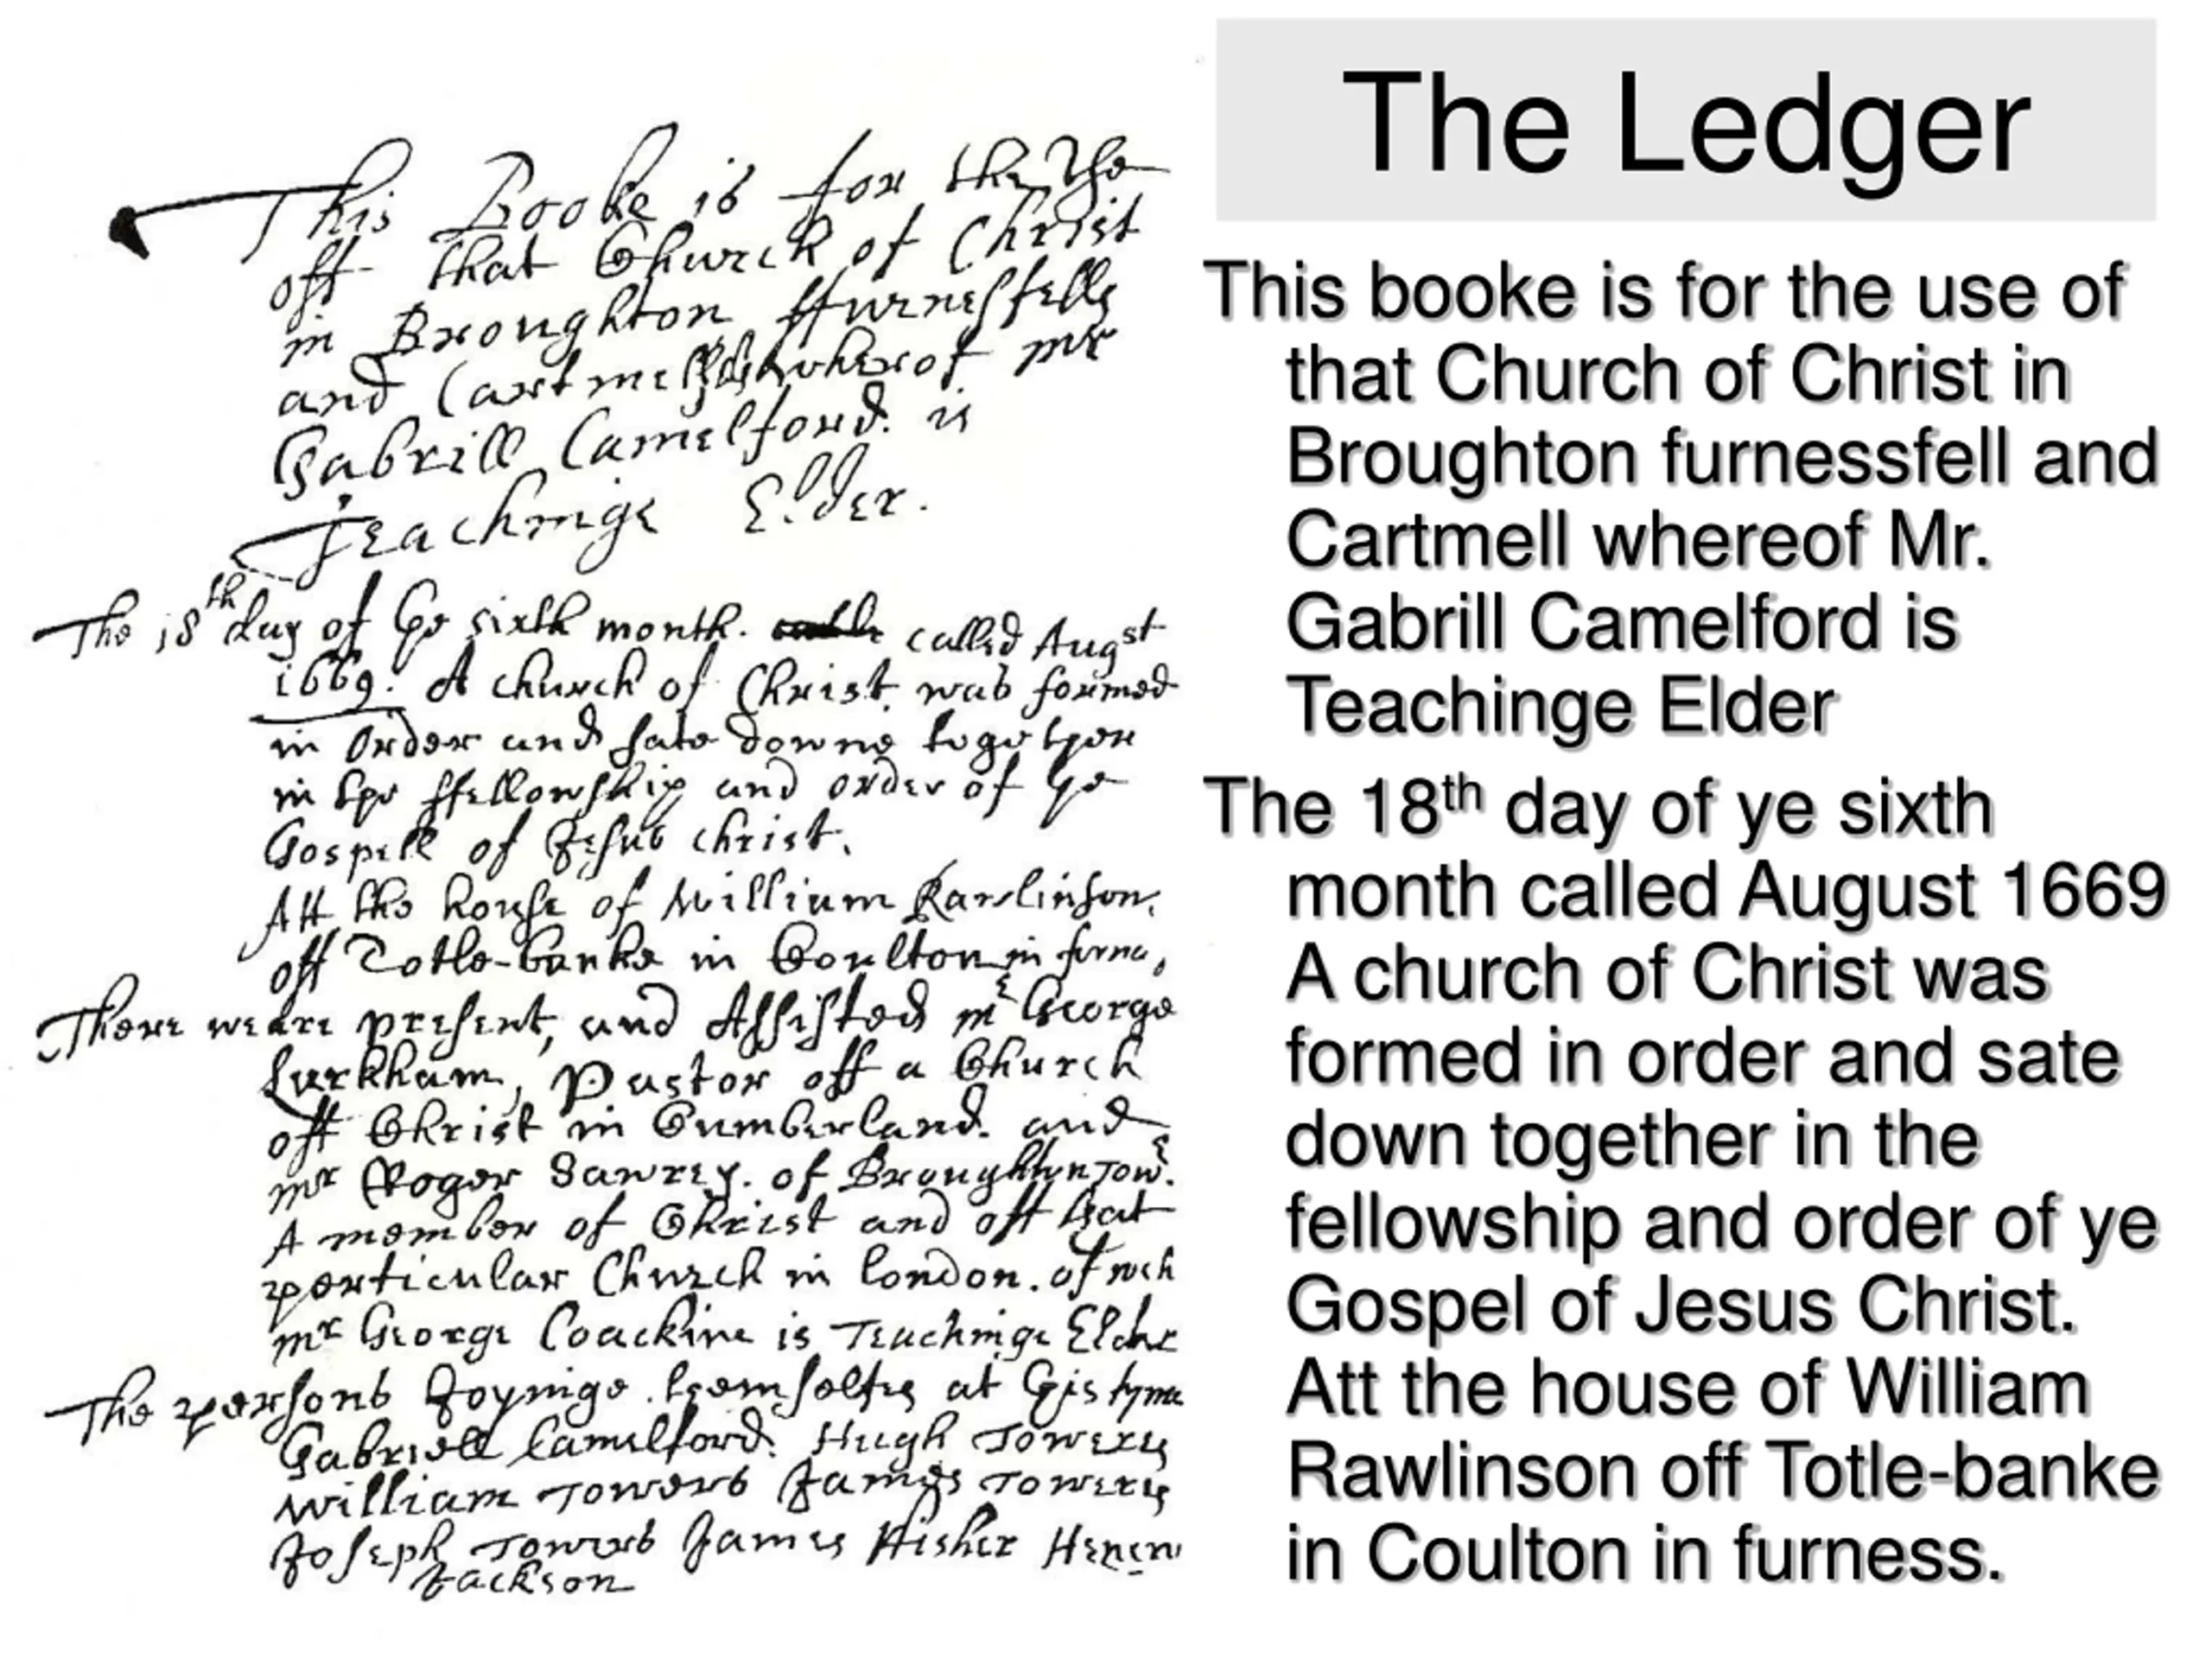 This Booke is for the the
off that Church of Christ
in Broughton ffurnesfells
and Cartmell wherof mr
Gabrill Camelford. is
Teachinge Elder.
The 18th day of ye sixth month. called Augst
1669. A church of Christ was formed
in order and sate downe together
in the ffellowship and order of ye
Gospell of Jesus christ.
Att the house of William Rawlinson,
off Totle-banke in Coulton in furna,
There weare present, and Assisted mr George
Larkham, Pastor off a Church
off Christ in Cumberland. and
mr Roger Sawrey. of Broughton Towr.
A member of Christ and off that
perticular Church in london. of wch
mr George Coackine is Teachinge Elder
The persons Joyninge themselves at this tyme
Gabriell Camelford. Hugh Towers
William Towers James Towers
Joseph Towers James ffisher
Jackson
The Ledger
This booke is for the use of
that Church of Christ in
Broughton furnessfell and
Cartmell whereof Mr.
Gabrill Camelford is
Teachinge Elder
The 18th day of ye sixth
month called August 1669
A church of Christ was
formed in order and sate
down together in the
fellowship and order of ye
Gospel of Jesus Christ.
Att the house of William
Rawlinson off Totle-banke
in Coulton in furness.